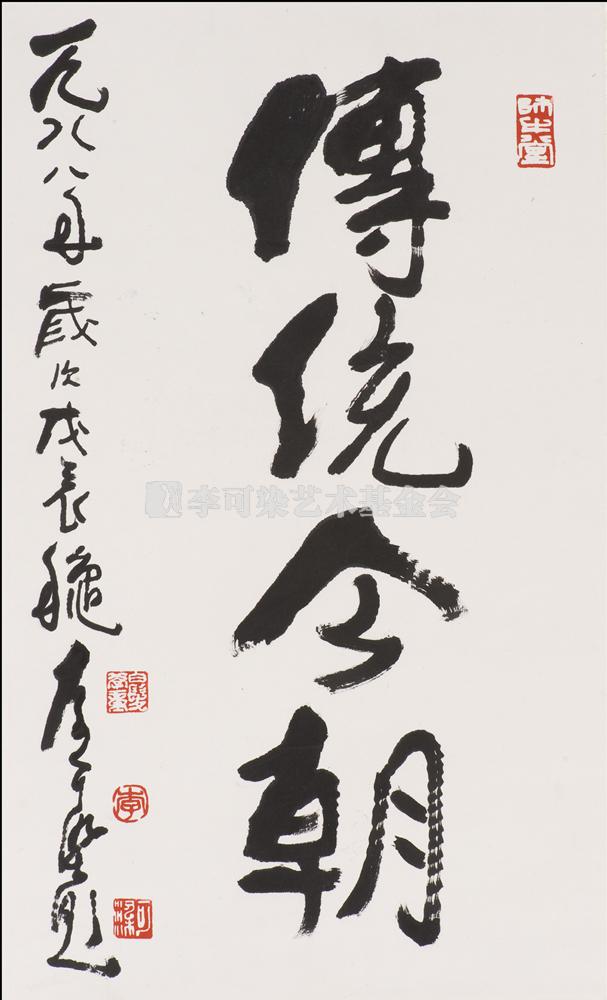 師牛堂
傳統今朝
一九八八年歲次戊辰龝李可染題
白髮學童
李
可染
李可染艺术基金会